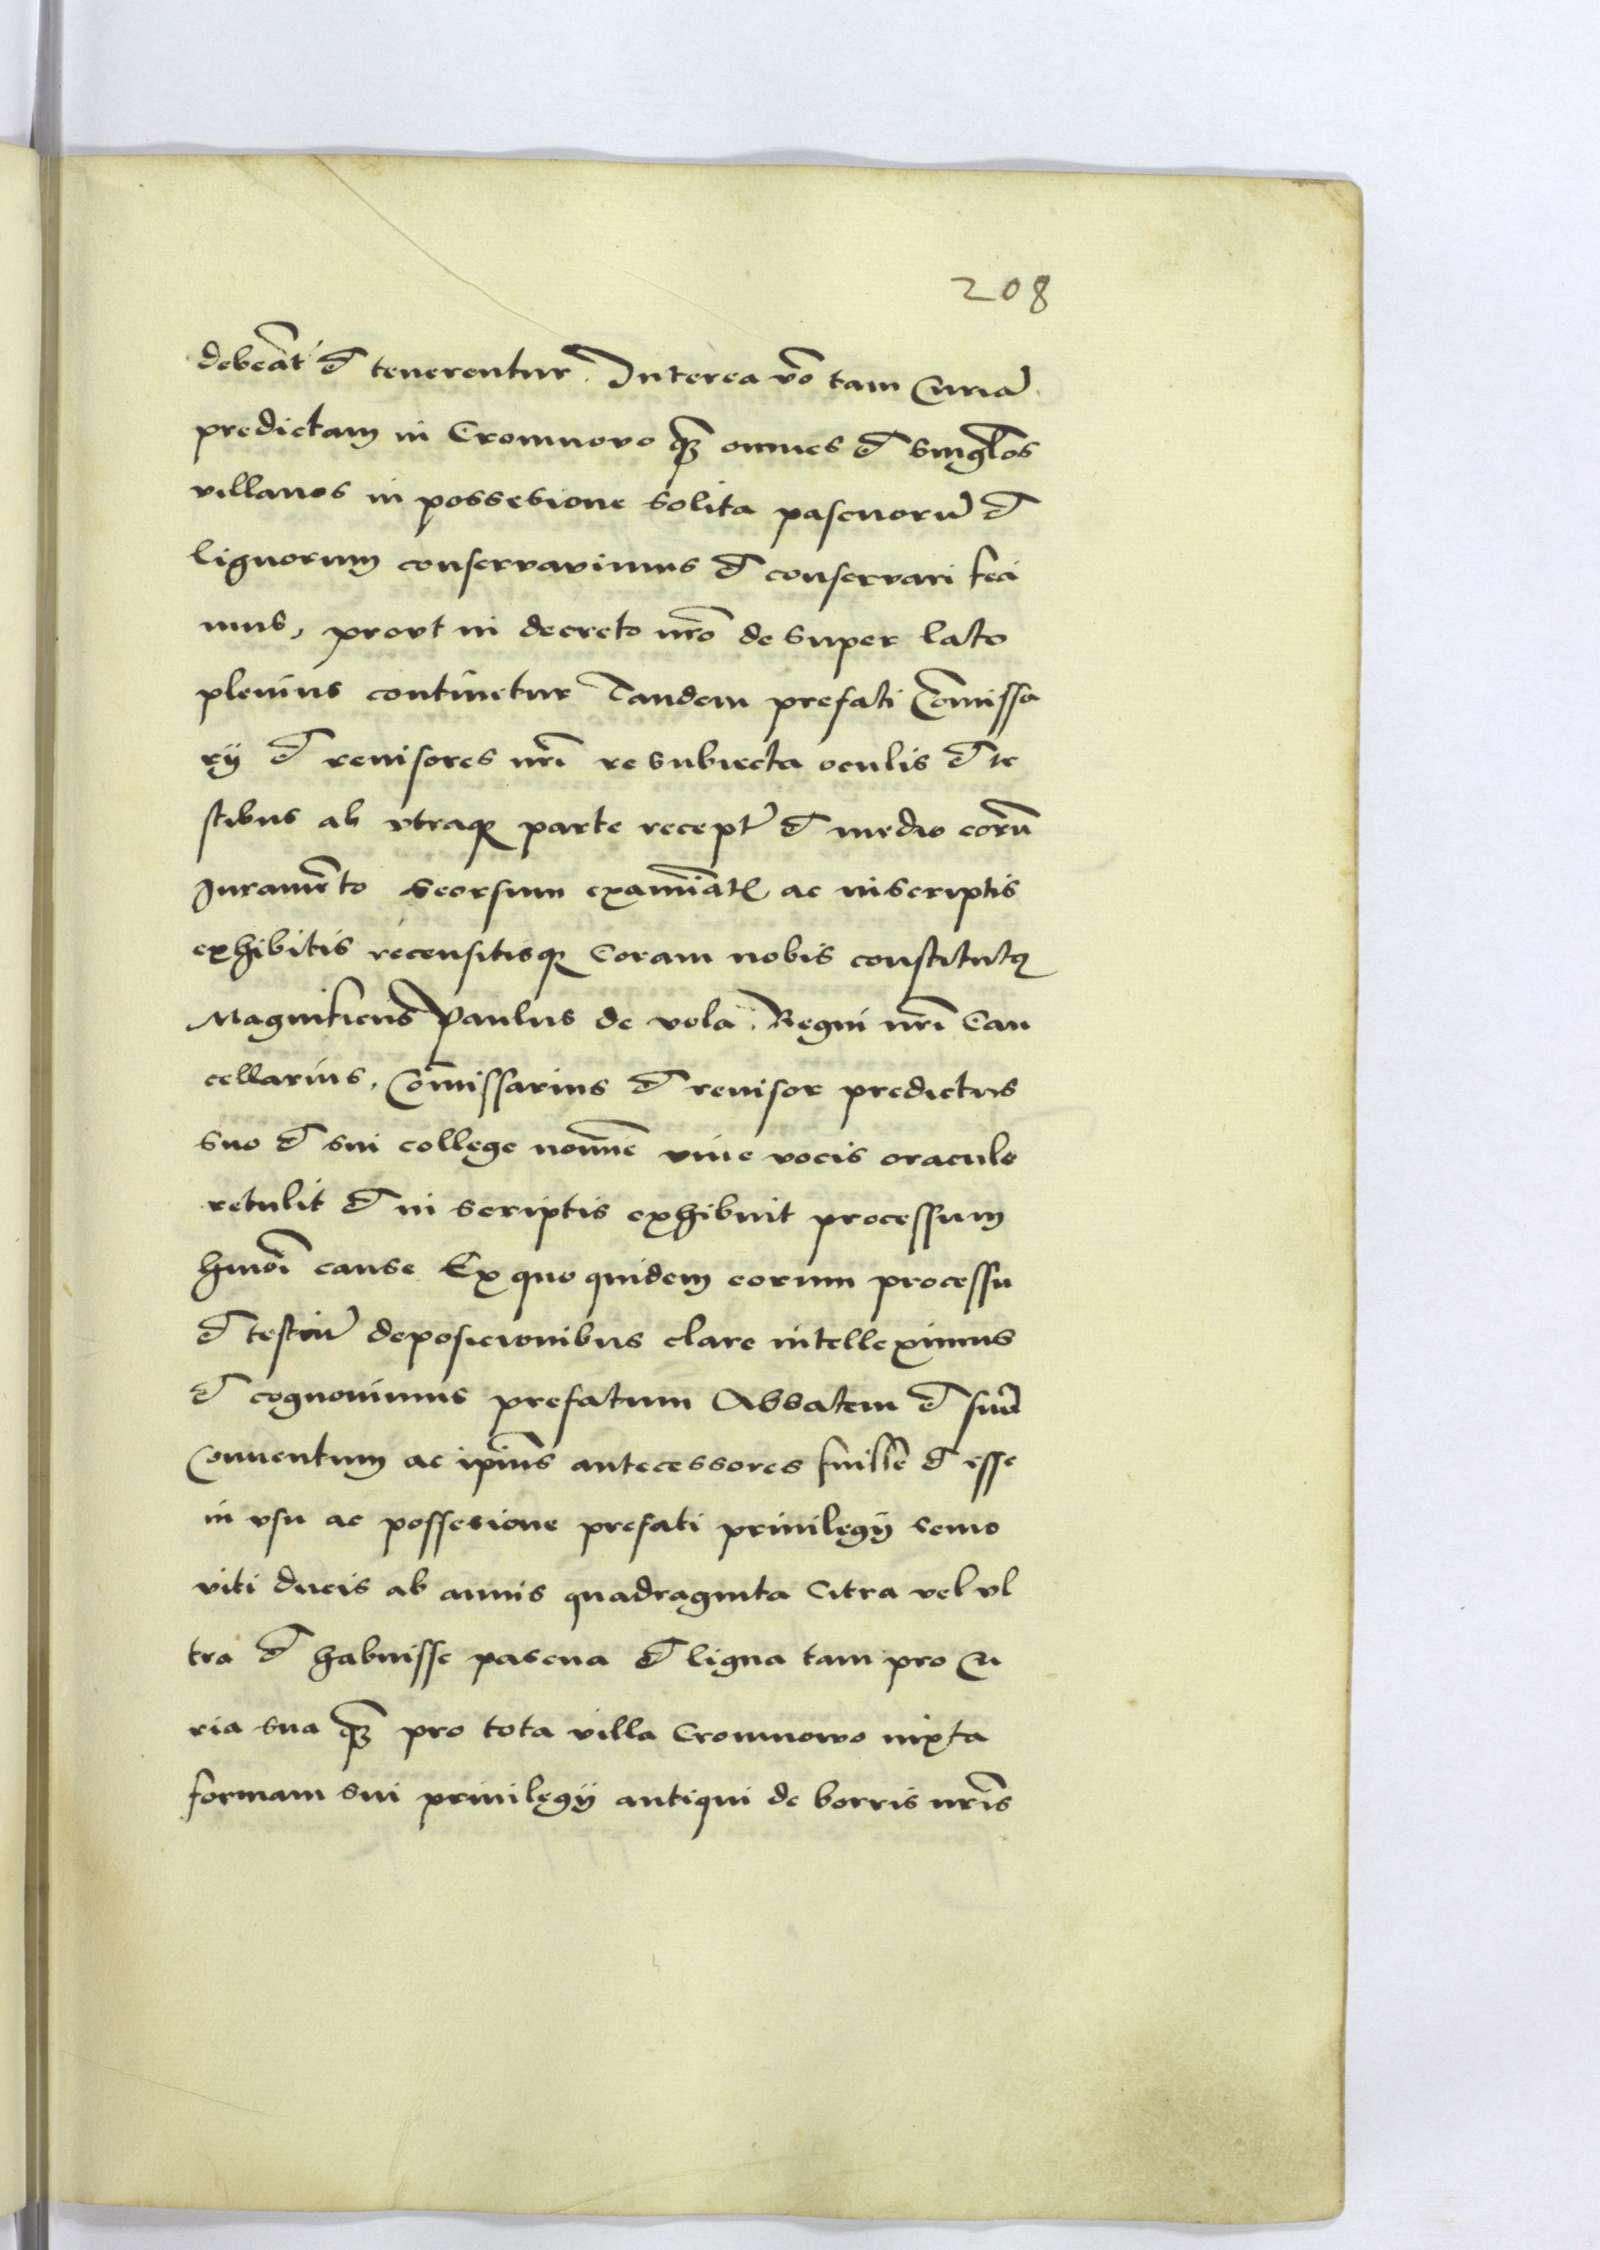 208
debeāt et tenerentur. Interea v̄o tam Curiā
predictam in Cromnovo q̄ꝫ omnes et singl̄os
villanos in possesione solita pascuorū et
lignorum conservavimus et conservari feci
mus, prout in decreto nr̄o desuper lato
plenius continetur Tandem prefati Com̄issa
rij et reuisores nr̄i re subiecta oculis et te
stibus ab vtraqꝫ parte recept̄ et medio eor̄u
Iuramēto seorsum examīat̄ ac in scriptis
exhibitis recensitisqꝫ Coram nobis constitutꝰ
Magnificus Paulus de vola. Regni nr̄i Can
cellarius, Com̄issarius et reuisor predictus
suo et sui college nomīe viue vocis oraculo
retulit et in scriptis exhibuit processum
hmōi cause Ex quo quidem eorum processu
et testiū deposicionibus clare intelleximus
et cognouimus prefatum Abbatem et suū
Conuentum ac ip̄ius antecessores fuisse et esse
in vsu ac possesione prefati priuilegij semo
viti ducis ab annis quadraginta Citra vel vl
tra et habuisse pascua et ligna tam pro Cu
ria sua q̄ꝫ pro tota villa Cromnowo iuxta
formam sui priuilegij antiqui de borris nr̄is